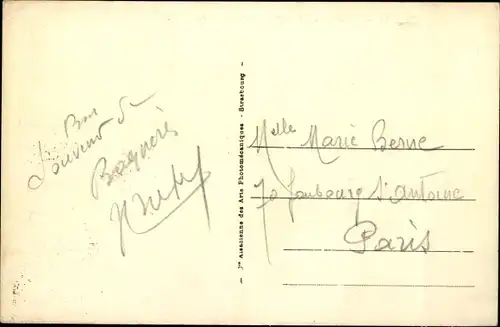 Bon
Souvenir de
Bagneris
- Jte Alsacienne des Arts Photomécaniques - Strasbourg -
Melle Marie Berne
70 faubourg St Antoine
Paris